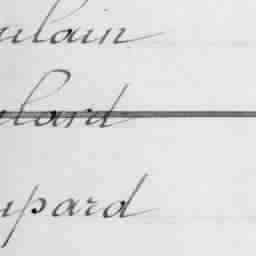 ulain
lard
upard